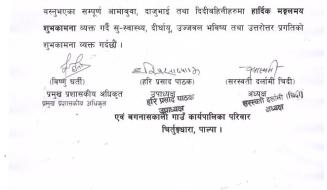 वस्नुभएका सम्पूर्ण आमाबुवा, दाजुभाई तथा दिदीबहिनीहरुमा हार्दिक मङ्गलमय
शुभकामना व्यक्त गर्दै सु-स्वास्थ्य, दीर्घायू, उज्ज्वल भविष्य तथा उत्तरोत्तर प्रगतिको
शुभकामना व्यक्त गर्दछौं ।
(विष्णु घर्ती) (हरि प्रसाद पाठक) (सरस्वती दर्लामी चिदी)
प्रमुख प्रशासकीय अधिकृत उपाध्यक्ष अध्यक्ष
प्रमुख प्रशासकीय अधिकृत हरि प्रसाद पाठक सरस्वती दर्लामी (चिदी)
उपाध्यक्ष अध्यक्ष
एवं बगनासकाली गाउँ कार्यपालिका परिवार
चिर्तुङ्धारा, पाल्पा ।